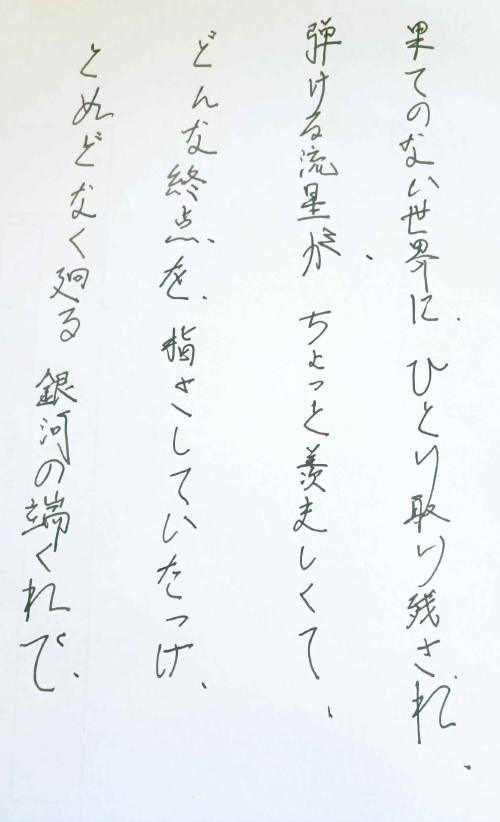 果てのない世界に、ひとり取り残され、
弾ける流星が、ちょっと羨ましくて、
どんな終点を、指さしていたっけ、
とめどなく廻る 銀河の端くれで、